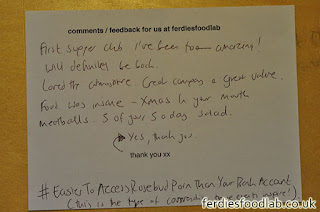 comments / feedback for us at ferdiesfoodlab
First supper club I've been to – amazing!
Will definitely be back.
Loved the atmosphere. Great company & great value.
Food was insane – Xmas in your mouth
meatballs. 5 of your 5 a day salad.
Yes, thank you
thank you xx
#EasierToAccessRosebudPornThanYourBankAccount
(this is the type of conversation to be
ferdiesfoodlab.co.uk